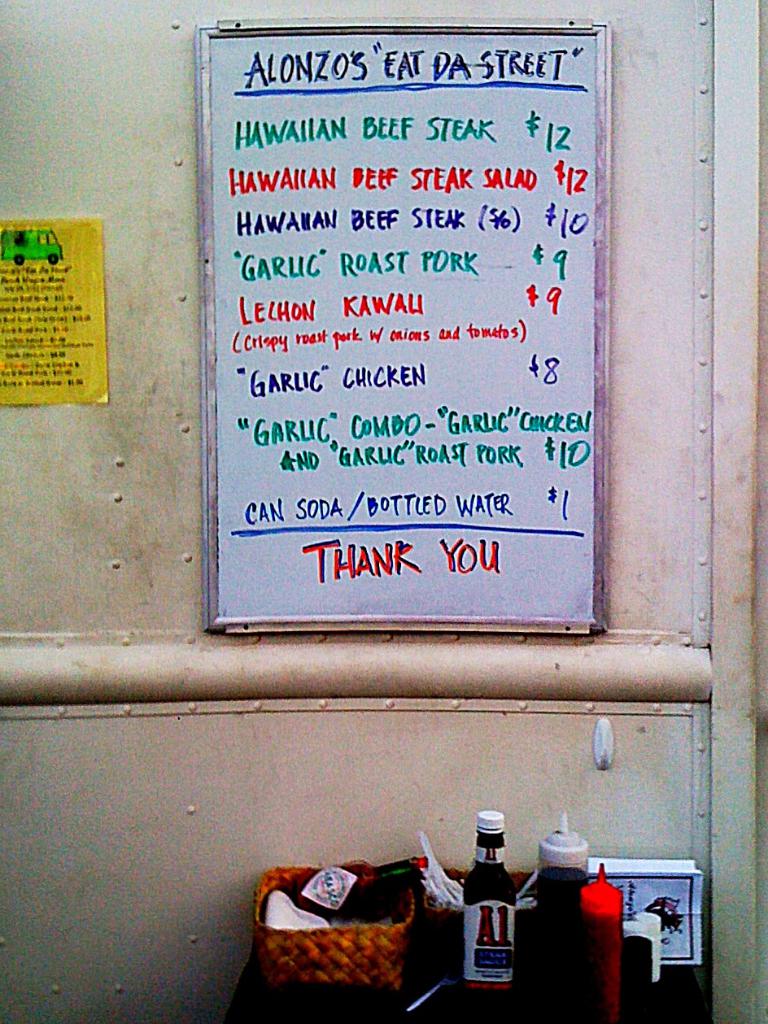 ALONZO'S "EAT DA STREET"
HAWAIIAN BEEF STEAK $12
HAWAIIAN BEEF STEAK SALAD $12
HAWAIIAN BEEF STEAK ($6) $10
"GARLIC" ROAST PORK $9
LECHON KAWALI $9
(Crispy roast pork w/ onions and tomatos)
"GARLIC" CHICKEN $8
"GARLIC" COMBO - "GARLIC" CHICKEN
AND "GARLIC" ROAST PORK $10
CAN SODA/BOTTLED WATER $1
THANK YOU
A1